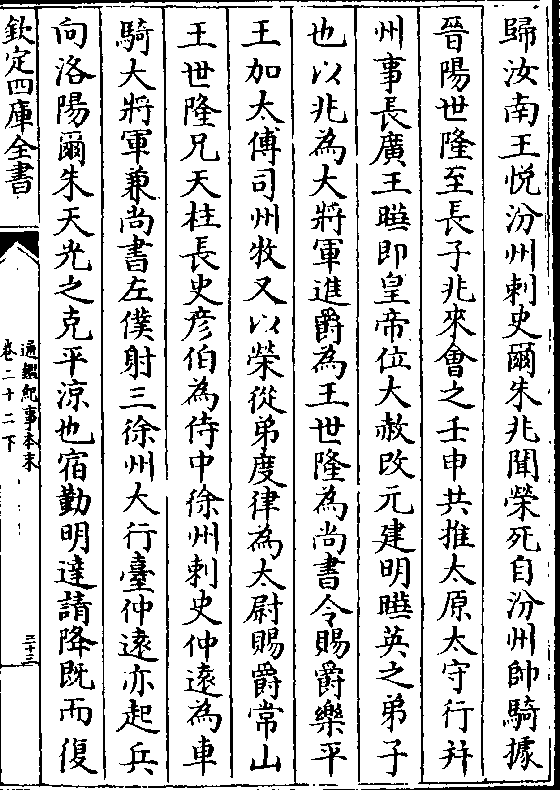 歸汝南王悅汾州刺史爾朱兆聞榮死自汾州帥騎據
晉陽世隆至長子兆來會之壬申共推太原太守行并
州事長廣王曄即皇帝位大赦改元建明曄英之弟子
也以兆為大將軍進爵為王世隆為尚書令賜爵樂平
王加太傅司州牧又以榮從弟度律為太尉賜爵常山
王世隆兄天柱長史彦伯為侍中徐州刺史仲遠為車
騎大將軍兼尚書左僕射三徐州大行臺仲遠亦起兵
向洛陽爾朱天光之克平涼也宿勤明達請降既而復
欽定四庫全書
通鑑紀事本末
卷二十二下
三十三